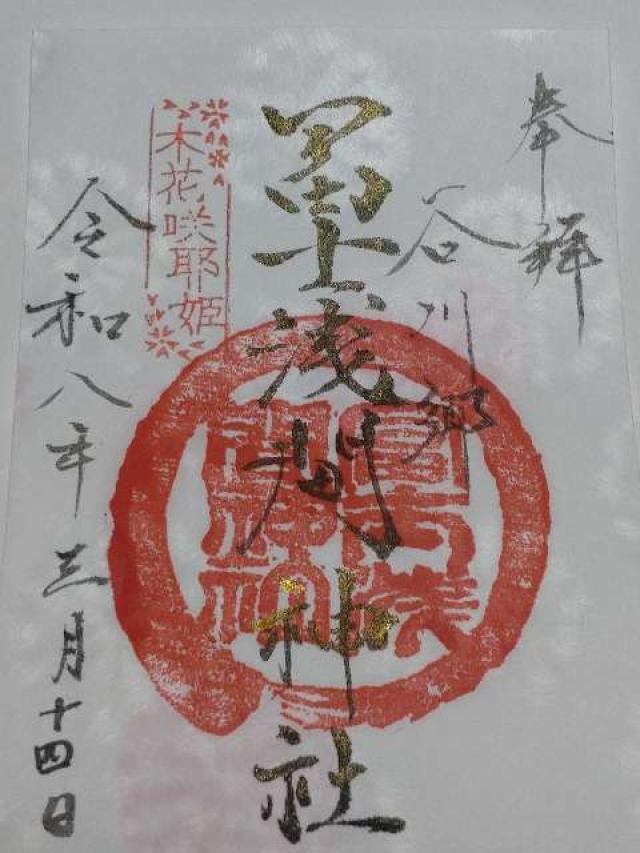 奉拝
谷川郷
冨士浅間神社
木花咲耶姫
令和八年三月十四日